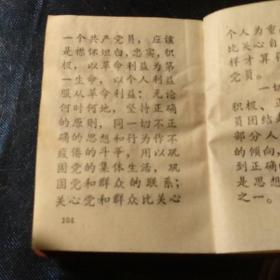 一个共产党员，应该
是襟怀坦白，忠实，积
极，以革命利益为第
一生命，以个人利益
服从革命利益；无论
何时何地，坚持正确
的原则，同一切不正
确的思想和行为作不
疲倦的斗争，用以巩
固党的集体生活，巩
固党和群众的联系；
关心党和群众比关心
104
个人为重
比关心自
样才算得
党员。
一切
积极、
员团结
部分人
的倾向，
到正确
是思想
之一。